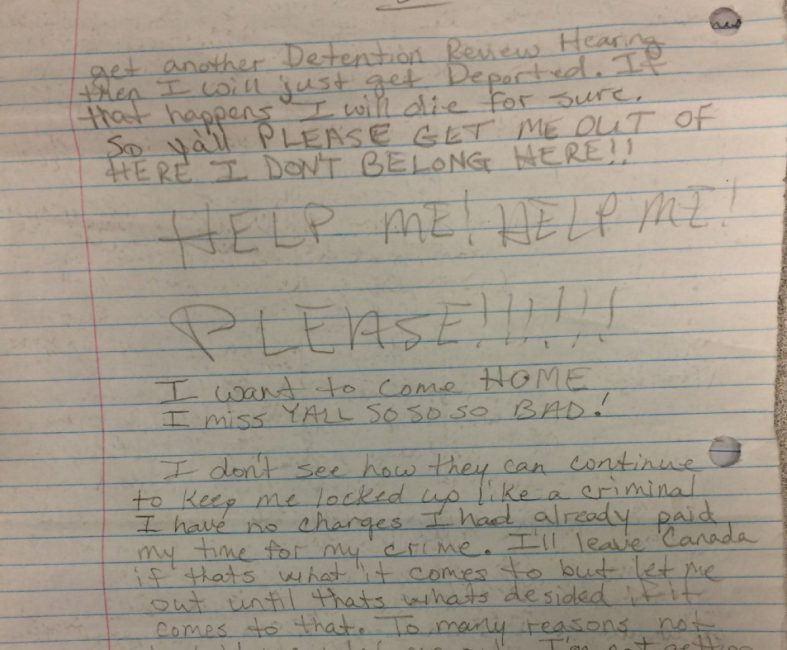 get another Detention Review Hearing
then I will just get Deported. If
that happens I will die for sure.
So ya'll PLEASE GET ME OUT OF
HERE I DON'T BELONG HERE!!
HELP ME! HELP ME!
PLEASE!!!!!!
I want to come HOME
I miss YALL SO SO SO BAD!
I don't see how they can continue
to keep me locked up like a criminal
I have no charges I had already paid
my time for my crime. I'll leave Canada
if thats what it comes to but let me
out until thats whats desided if it
comes to that. To many reasons not